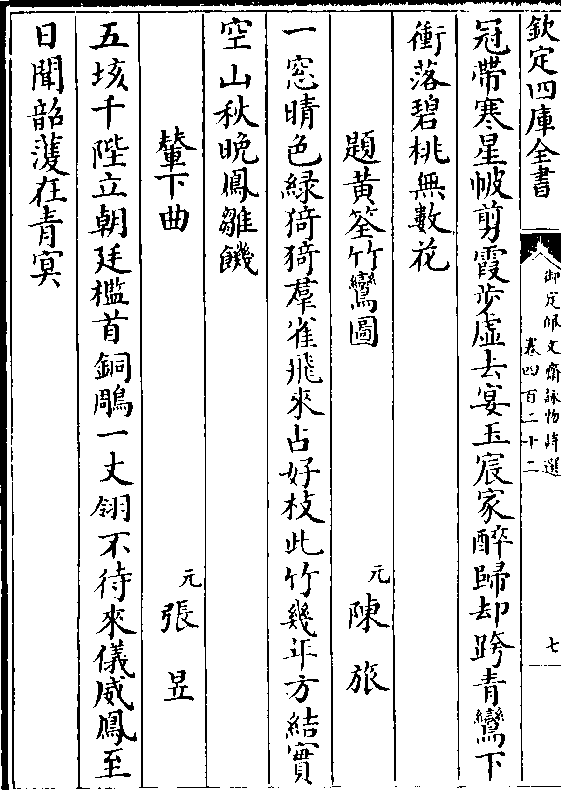 欽定四庫全書
御定佩文齋詠物詩選
卷四百二十二
七
冠帶寒星帔剪霞步虛去宴玉宸家醉歸却跨青鸞下
衝落碧桃無數花
題黃筌竹鸞圖
元陳旅
一窓晴色綠猗猗羣雀飛來占好枝此竹幾年方結實
空山秋晚鳳雛饑
輦下曲
元張昱
五垓千陛立朝廷檻首銅鵰一丈翎不待來儀威鳳至
日聞韶頀在青冥